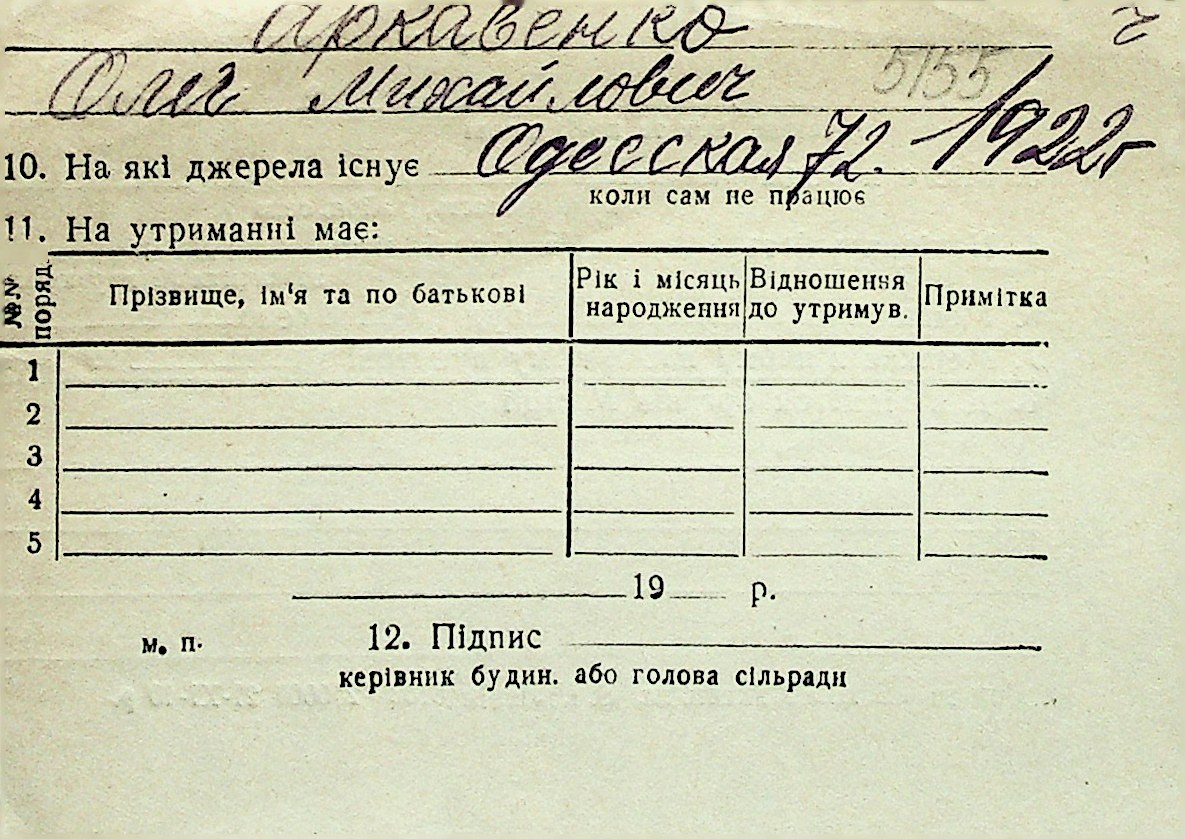 Аркавенко
Олег Михайлович 5155
10. На які джерела існує Одесская 72. 1922г
коли сам не працює
11. На утриманні має:
№№ поряд. Прізвище, ім'я та по батькові Рік і місяць народження Відношення до утримув. Примітка
1
2
3
4
5
19 р.
м. п. 12. Підпис
керівник будин. або голова сільради